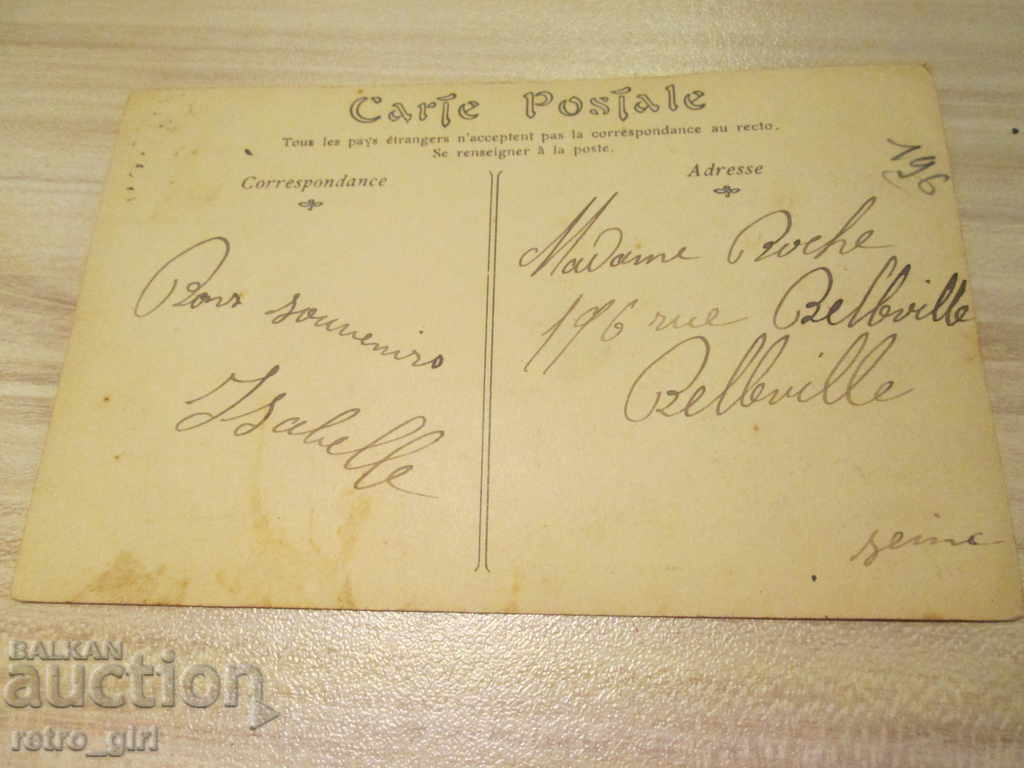 Carte Postale
Tous les pays étrangers n'acceptent pas la correspondance au recto.
Se renseigner à la poste.
Correspondance
Adresse
196
Bons souvenirs
Isabelle
Madame Roche
196 rue Belleville
Belleville
seine
BALKAN
auction
retro_girl